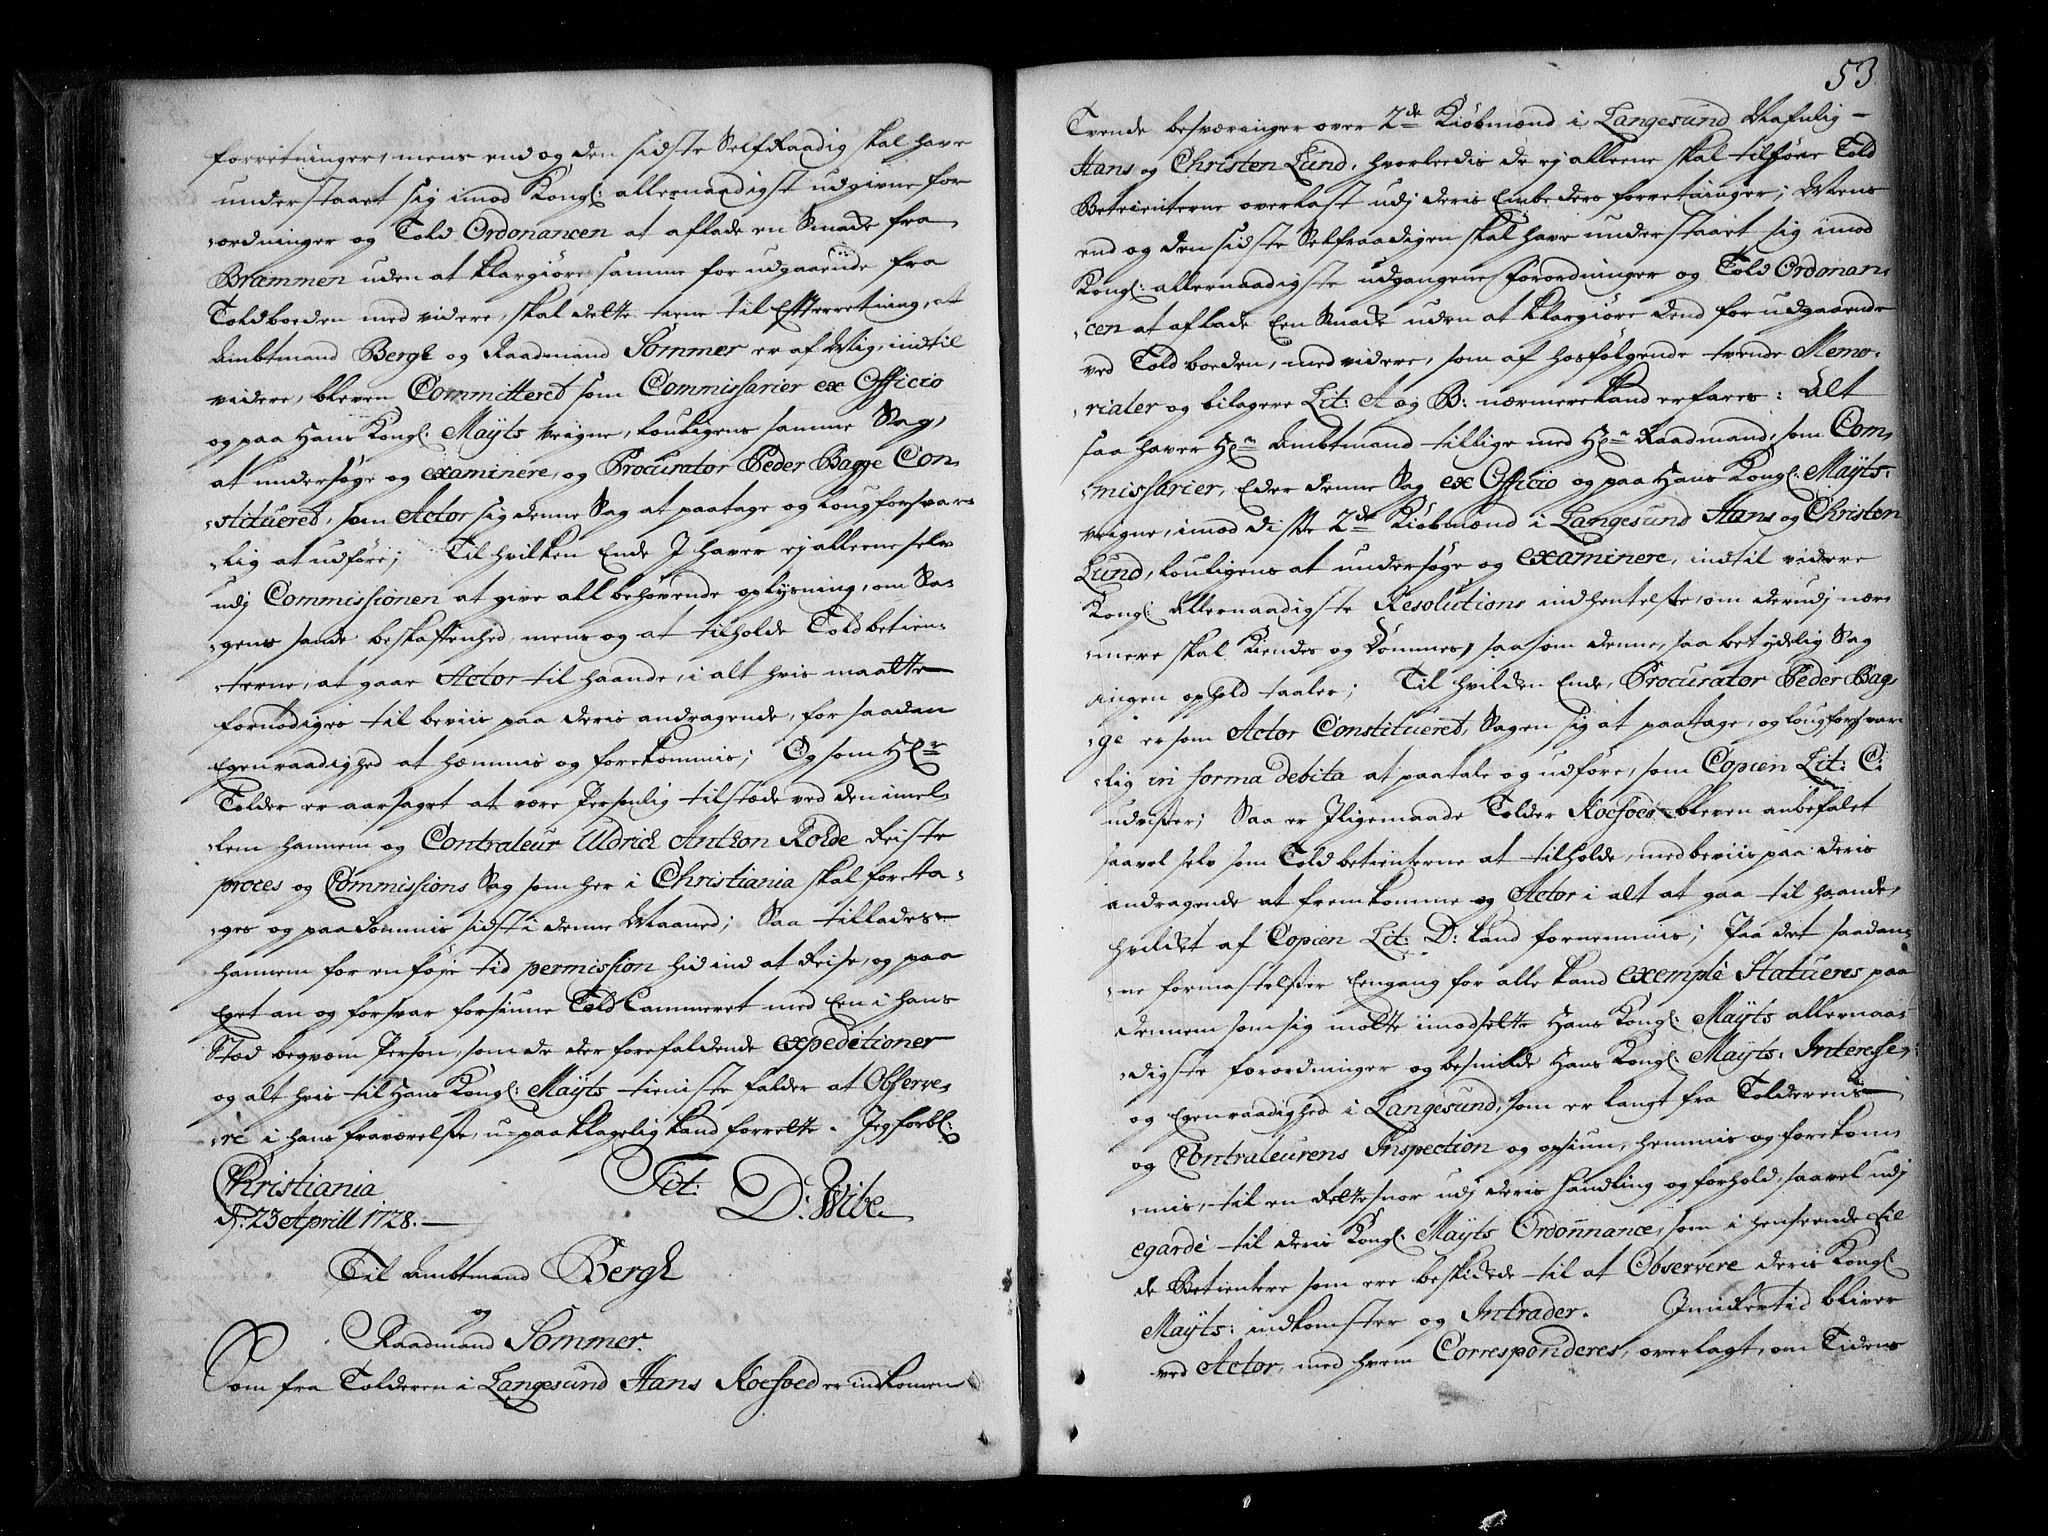 forretninger, mens end og den sidste Selfraadig skal have
understaaet sig imod Kongl: allernaadigst udgivne for
-ordninger og Told Ordonancen at aflade en Smade fra
Brammen uden at klargiøre samme for udgaaende fra
Toldboeden med videre, skal dette tiene til Efterretning, at
Ambtmand Bergh og Raadmand Sommer er af Mig, indtil
videre, bleven Committeret som Commissarier ex Officio
og paa Hans Kongl: Mayts veigne, louligens samme Sag,
at undersøge og examinere, og Procurator Peder Bagge Con-
-stitueret, som Actor sig denne Sag at paatage og lougforsvar-
-lig at udføre; Til hvilken Ende I haver ej alleene selv
udj Commissionen at give all behøvende oplysning, om Sa-
-gens sande beskaffenhed, mens og at tilholde Toldbetien-
-terne, at gaae Actor til haande, i alt hvis maatte
fornødiges til beviis paa deris andragende, for saadan
Egenraadighed at hæmmis og forekommis; Og som Hr:
Tolder er aarsaget at være Personlig tilstede ved den imel-
-lem hannem og Contraleur Uldrich Anthon Rohde Reiste
proces og Commissions Sag som her i Christiania skal foreta-
-ges og paadommis sidst i denne Maaned; Saa tillades
hannem for en føje tid permission hid ind at Reise, og paa
Eget an og forsvar forsiune Told Cammeret med Een i hans
Sted beqvem Person, som de der forefaldende expeditioner
og alt hvis til Hans Kongl: Mayts tieniste falder at Observe-
-re i hans fraværelse, u-paaklagelig kand forrette. Jeg forbl:
Christiania Tit: D: Wibe
d: 23 Aprill 1728.
Til Ambtmand Bergh
og
Raadmand Sommer.
Som fra Tolderen i Langesund Hans Koefoed er indkomen
53
Tvende besværinger over 2de Kiøbmænd i Langesund Nafnlig
Hans og Christen Lund, hvorleedis de ej alleene skal tilføye Told
Betienterne overlast udj deris Embeders forretninger; Mens
end og den sidste Selfraadigen skal have understaaet sig imod
Kongl: allernaadigste udgangene forordninger og Told Ordonan-
-cen at aflade Een Smade uden at klargiøre dend for udgaaende
ved Toldboeden, med videre, som af hosfølgende tvende Memo-
-rialer og bilagere Lit: A og B: nærmere kand erfares: Alt
saa haver Hr Ambtmand tillige med Hr Raadmand, som Com-
-missarier, Eder denne Sag ex Officio og paa Hans Kongl: Mayts:
veigne, imod disse 2de Kiøbmænd i Langesund Hans og Christen
Lund, louligens at undersøge og examinere, indtil videre
Kongl: Allernaadigste Resolutions indhentelse, om derudj nær-
-mere skal kiendes og dømmes, saasom denne, saa betydelig Sag
ingen ophold taaler; Til hvilden Ende, Procurator Peder Bag-
-ge er som Actor Constitueret, Sagen sig at paatage, og lougforsvar-
-lig in forma debita at paatale og udføre, som Copien Lit: C:
udviser; Saa er Iligemaade Tolder Koefoed bleven anbefalet
saavel selv som Toldbetienterne at tilholde, med beviis paa deris
andragende at fremkomme og Actor i alt at gaa til haande,
hvildet af Copien Lit: D: kand fornemmis; Paa det saadan-
-ne formastelser Eengang for alle kand exemple Statueres paa
dennem som sig motte imodsette Hans Kongl: Mayts allernaa-
-digste forordninger og besmilde Hans Kongl: Mayts: Interesse,
og Egenraadighed i Langesund, som er langt fra Tolderens
og Contraleurens Inspection og opsiun, hemmis og forekom-
-mis, til en rettesnor udj deris handling og forhold, saavel udj
egarde til deris Kongl: Mayts Ordonnance, som i henseende til
de Betientere som ere beskikede til at Observere deris Kongl:
Mayts: indkomster og Intrader. Imidlertid bliver
ved Actor, med hvem Corresponderes, overlagt, om Tidens